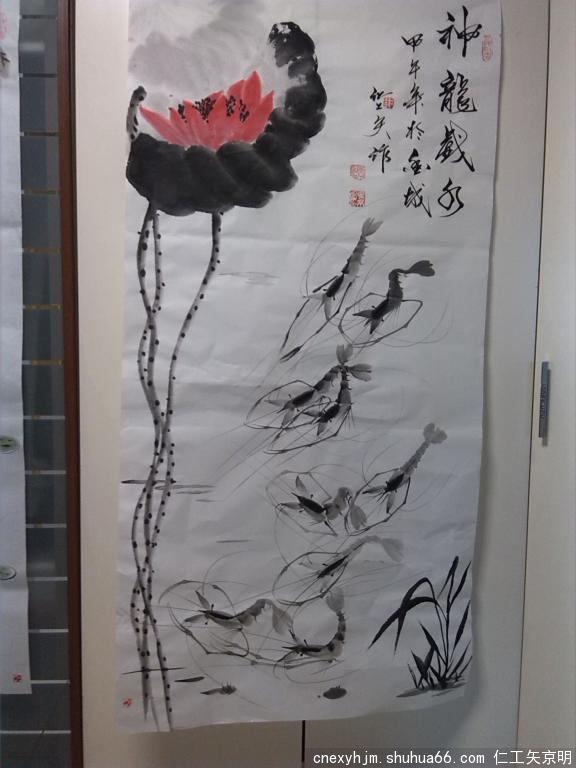 神龍戲水
甲午年於金城
仁工矢作
cnexyhjm.shuhua66.com 仁工矢京明